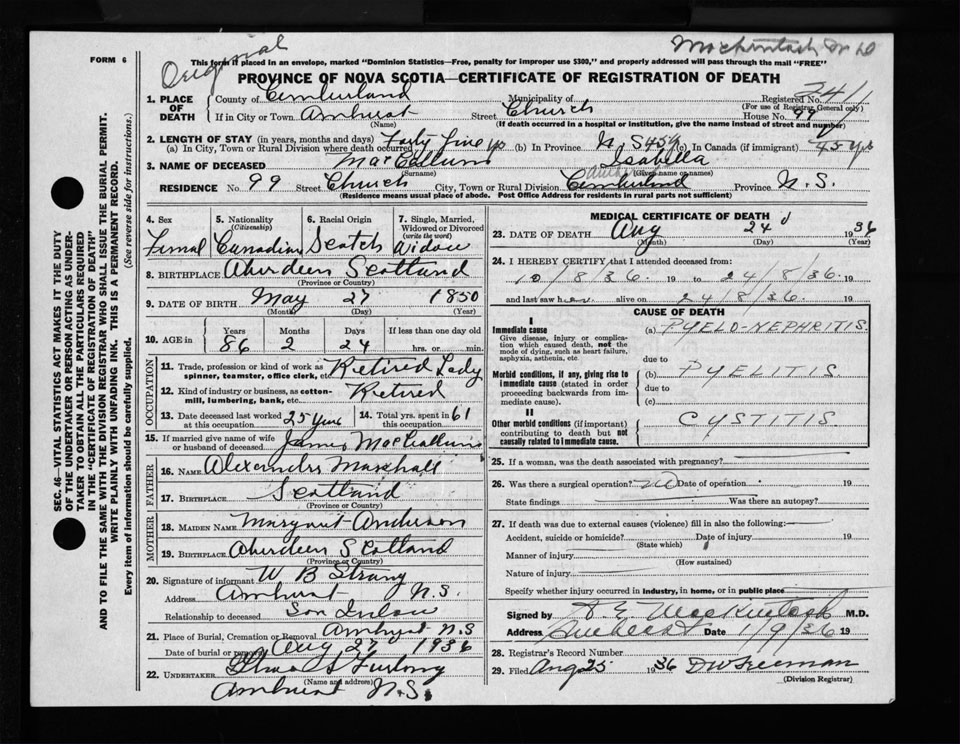 Mackintosh
FORM 6
Original
This form if placed in an envelope, marked "Dominion Statistics—Free, penalty for improper use $300," and properly addressed will pass through the mail "FREE"
PROVINCE OF NOVA SCOTIA—CERTIFICATE OF REGISTRATION OF DEATH
SEC. 46—VITAL STATISTICS ACT MAKES IT THE DUTY
OF THE UNDERTAKER OR PERSON ACTING AS UNDER-
TAKER TO OBTAIN ALL THE PARTICULARS REQUIRED
IN THE "CERTIFICATE OF REGISTRATION OF DEATH"
AND TO FILE THE SAME WITH THE DIVISION REGISTRAR WHO SHALL ISSUE THE BURIAL PERMIT.
WRITE PLAINLY WITH UNFADING INK. THIS IS A PERMANENT RECORD.
Every item of Information should be carefully supplied. (See reverse side for instructions.)
1. PLACE OF DEATH County of Cumberland Municipality of Registered No. 2411
(For use of Registrar General only)
If in City or Town Amherst Street Church House No. 99
(Name) (If death occurred in a hospital or institution, give the name instead of street and number)
2. LENGTH OF STAY (in years, months and days)
(a) In City, Town or Rural Division where death occurred Forty Five yrs (b) In Province N S 45 y (c) In Canada (if immigrant) 45 yrs
3. NAME OF DECEASED MacCallum Isabella
(Surname) (Given name or names)
RESIDENCE No. 99 Street Church City, Town or Rural Division Cumberland Province N.S.
(Residence means usual place of abode. Post Office Address for residents in rural parts not sufficient)
4. Sex 5. Nationality (Citizenship) 6. Racial Origin 7. Single, Married, Widowed or Divorced (write the word)
Femal Canadian Scotch Widow
8. BIRTHPLACE Aberdeen Scotland
(Province or Country)
9. DATE OF BIRTH May 27 1850
(Month) (Day) (Year)
10. AGE in Years Months Days If less than one day old
86 2 24 hrs. or min.
OCCUPATION
11. Trade, profession or kind of work as spinner, teamster, office clerk, etc. Retired Lady
12. Kind of industry or business, as cotton-mill, lumbering, bank, etc. Retired
13. Date deceased last worked at this occupation 25 Years 14. Total yrs. spent in this occupation 61
15. If married give name of wife or husband of deceased James MacCallum
FATHER
16. Name Alexander Marshall
17. Birthplace Scotland
(Province or Country)
MOTHER
18. Maiden Name Margaret Anderson
19. Birthplace Aberdeen Scotland
(Province or Country)
20. Signature of informant W B Strang
Address Amherst N.S.
Relationship to deceased Son Inlaw
21. Place of Burial, Cremation or Removal Amherst N.S
Date of burial or removal Aug 27 1936
22. UNDERTAKER Furlong
(Name and address)
Amherst N.S.
MEDICAL CERTIFICATE OF DEATH
23. DATE OF DEATH Aug 24 1936
(Month) (Day) (Year)
24. I HEREBY CERTIFY that I attended deceased from:
10/8/36. 19 to 24/8/36. 19
and last saw her alive on 24/8/36. 19
CAUSE OF DEATH
I
Immediate cause (a) PYELO-NEPHRITIS.
Give disease, injury or complication which caused death, not the mode of dying, such as heart failure, asphyxia, asthenia, etc.
due to
Morbid conditions, if any, giving rise to immediate cause (stated in order proceeding backwards from immediate cause). (b) PYELITIS.
due to
(c)
II
Other morbid conditions (if important) contributing to death but not causally related to immediate cause. CYSTITIS
25. If a woman, was the death associated with pregnancy?
26. Was there a surgical operation? no Date of operation 19
State findings Was there an autopsy?
27. If death was due to external causes (violence) fill in also the following:—
Accident, suicide or homicide? Date of injury 19
(State which)
Manner of injury
(How sustained)
Nature of injury
Specify whether injury occurred in industry, in home, or in public place
Signed by A. E. Mackintosh M.D.
Address Amherst Date 1/9/36 19
28. Registrar's Record Number
29. Filed Aug 25 1936 DW Freeman
(Division Registrar)